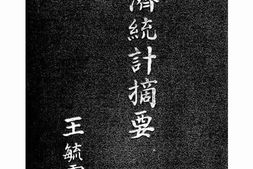 濟統計摘要
王毓